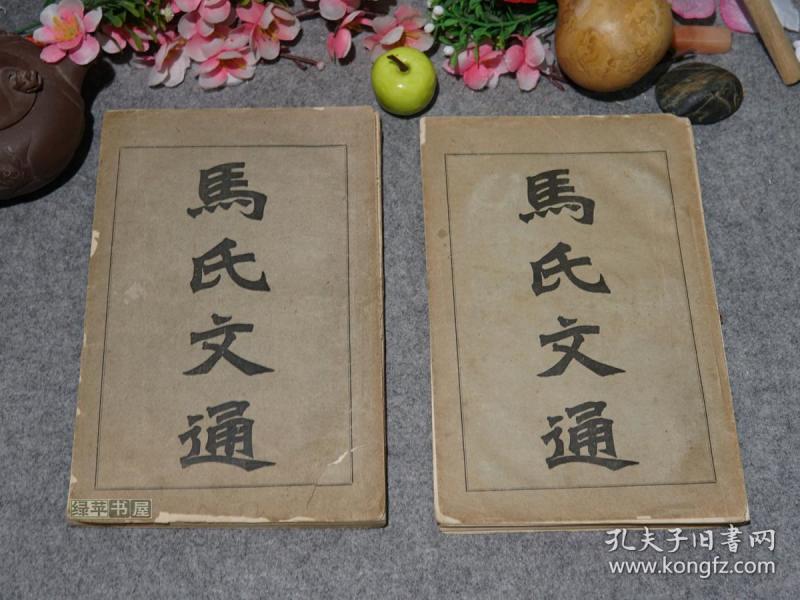 馬氏文通
馬氏文通
绿苹书屋
孔夫子旧書网
www.kongfz.com